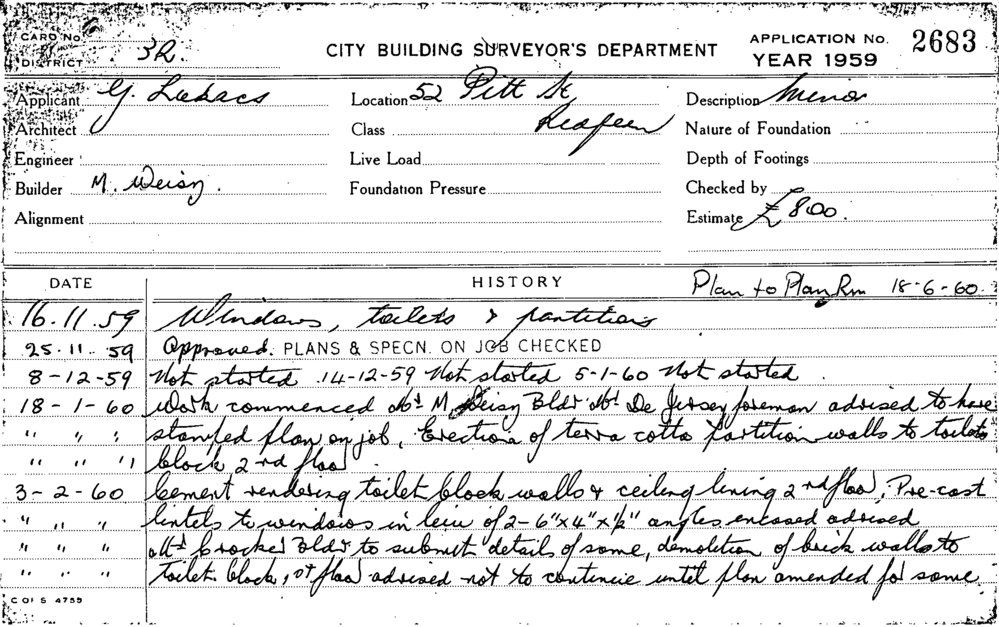 CARD No.
DISTRICT 3R.
CITY BUILDING SURVEYOR'S DEPARTMENT
APPLICATION No. 2683
YEAR 1959
Applicant G. Lukacs
Location 52 Pitt St
Description Minor
Architect
Class Redfern
Nature of Foundation
Engineer
Live Load
Depth of Footings
Builder M. Weisz.
Foundation Pressure
Checked by
Alignment
Estimate £800.
DATE
HISTORY
Plan to Plan Rm 18-6-60.
16.11.59 Windows, toilets & partitions
25.11.59 Approved. PLANS & SPECN. ON JOB CHECKED
8-12-59 Not started 14-12-59 Not started 5-1-60 Not started
18-1-60 Work commenced Mr M Weisz Bldr Mr De Jersey foreman advised to have
" " " stamped plan on job, Erection of terra cotta partition walls to toilets
" " " block 2nd floor.
3-2-60 Cement rendering toilet block walls & ceiling lining 2nd floor, Pre-cast
" " " lintels to windows in leiu of 2-6"x4"x½" angles encased advised
" " " Mr Crocker Bldr to submit details of same, demolition of brick walls to
" " " toilet block, 1st floor advised not to continue until plan amended for same
C OF S 4759